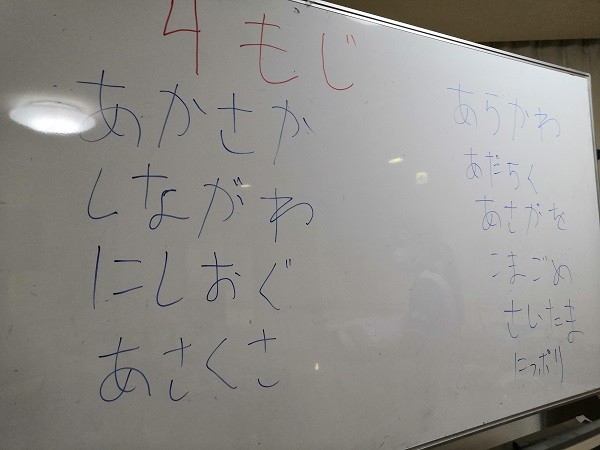 4もじ
あかさか
しながわ
にしおぐ
あさくさ
あらかわ
あだちく
あさがを
こまごめ
さいたま
にっポリ